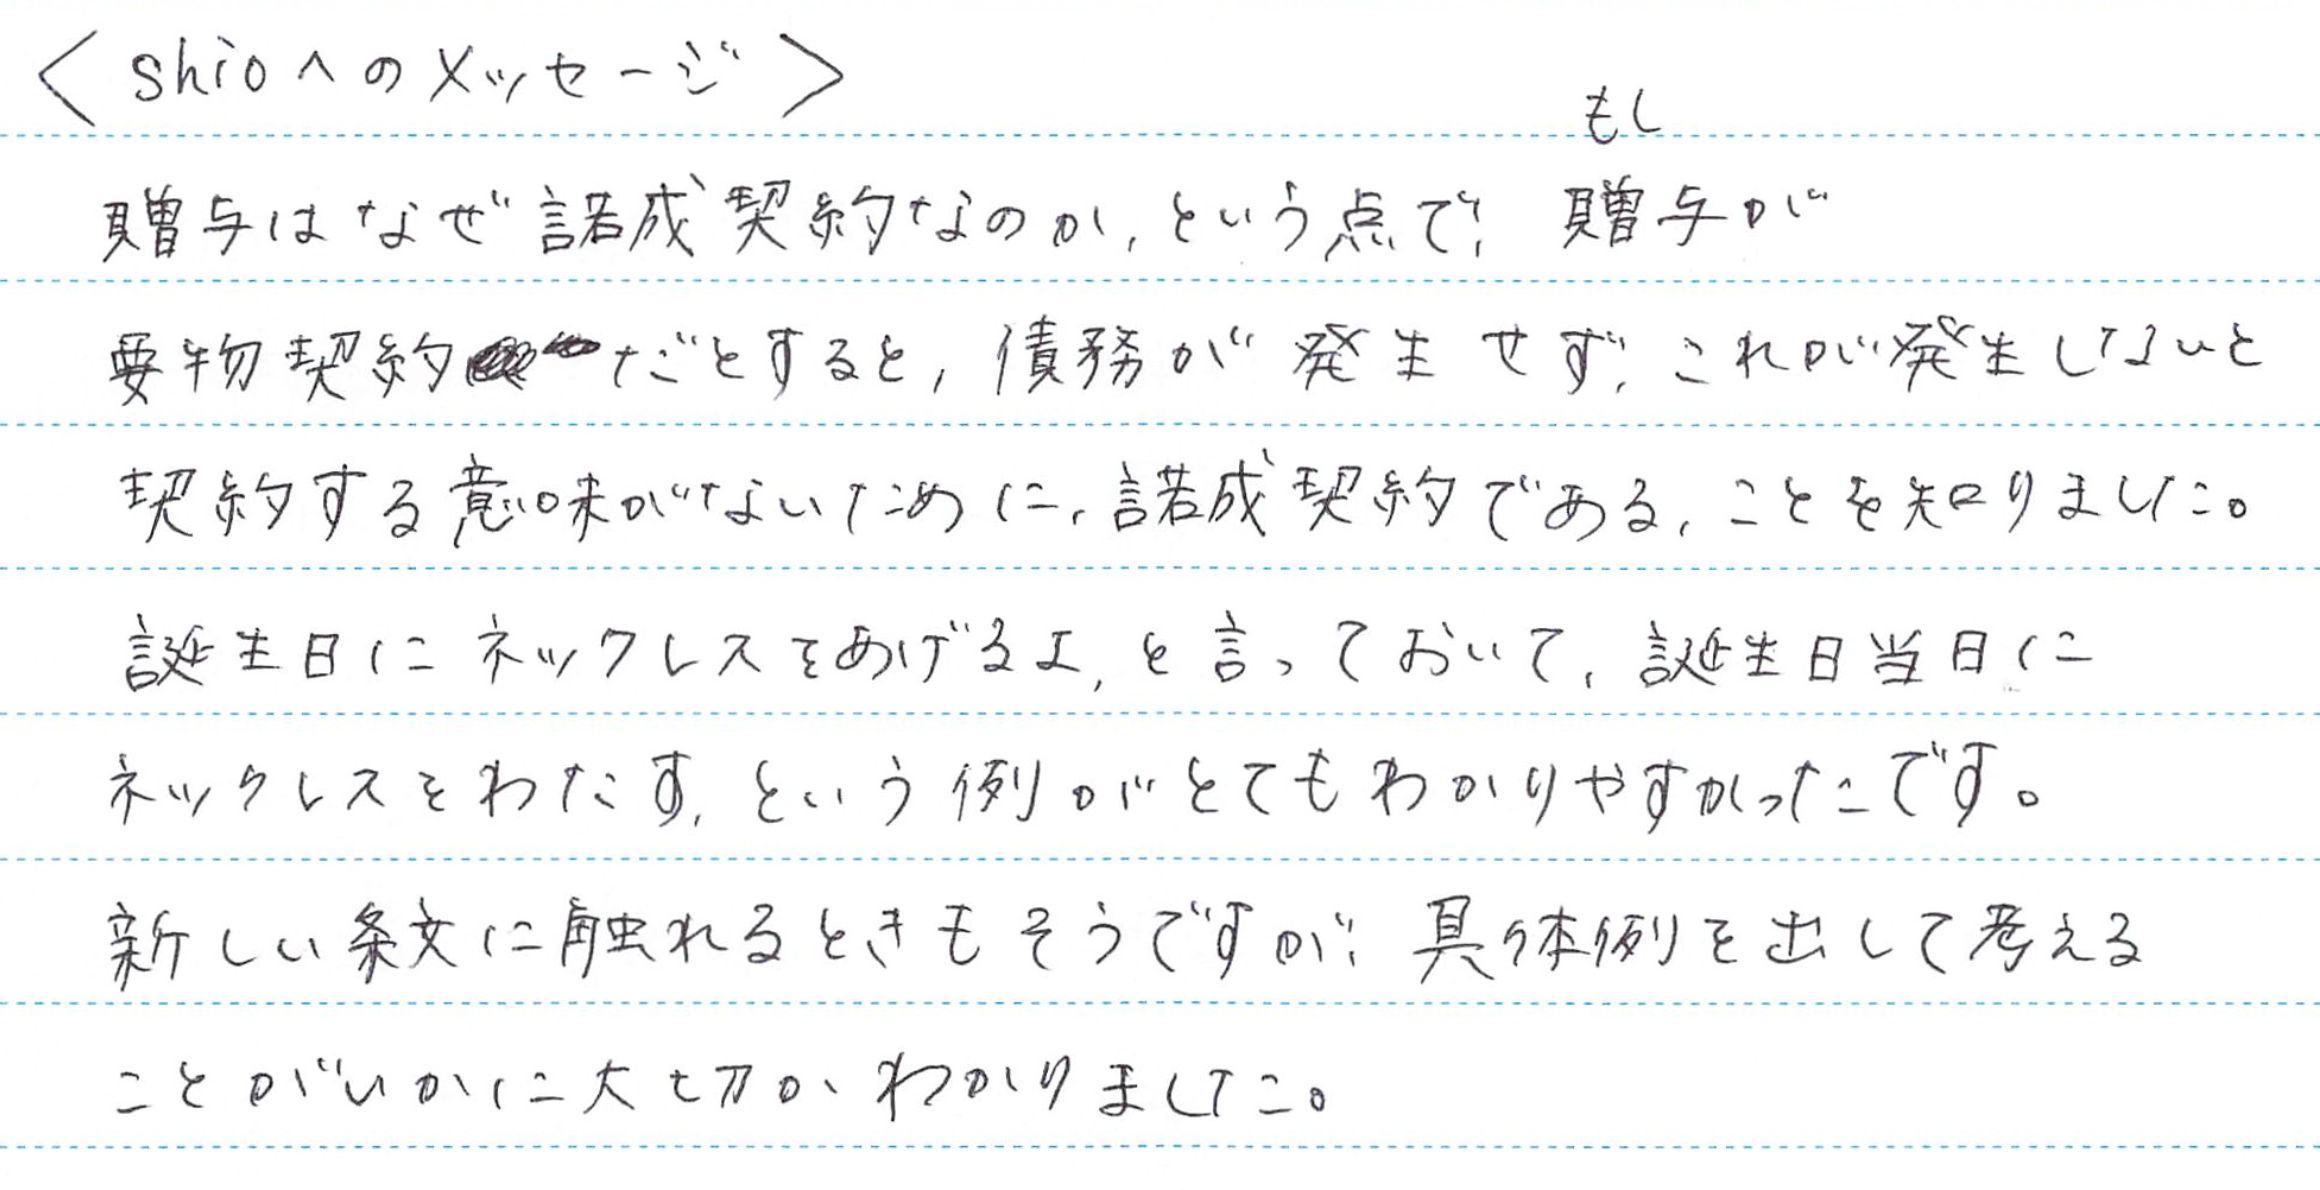 <shioへのメッセージ>
もし
贈与はなぜ諾成契約なのか,という点で,贈与が
要物契約だとすると,債務が発生せず,これが発生しないと
契約する意味がないために,諾成契約である,ことを知りました。
誕生日にネックレスをあげるよ,と言っておいて,誕生日当日に
ネックレスをわたす,という例がとてもわかりやすかったです。
新しい条文に触れるときもそうですが,具体例を出して考える
ことがいかに大切かわかりました。